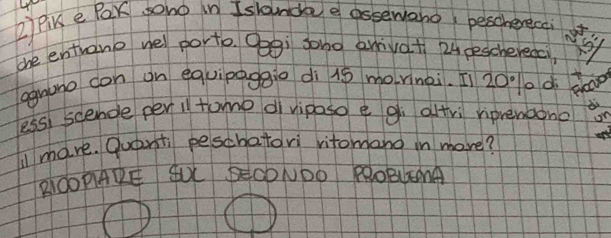 2) Pik e Pak sono in Islanda e osservano i pescherecci
che entrano nel porto. Oggi sono arrivati 24 pescherecci,
ognuno con un equipaggio di 15 marinai. Il 20% di
essi scende per il turno di riposo e gli altri riprendono
il mare. Quanti peschatori ritornano in mare?
RICOPIARE SUL SECONDO PROBLEMA